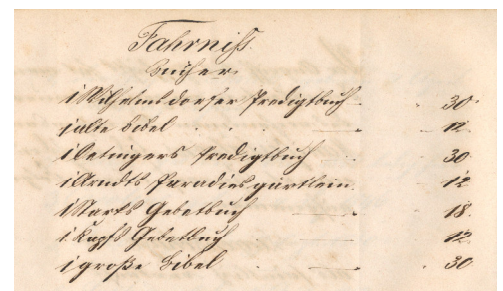 Fahrniß.
Bücher.
1 Wilhelmsdorfer Predigtbuch - . 30.
1 alte Bibel . . . — . 12.
1 Oetingers Predigtbuch . . 30
1 Arndts Paradiesgärtlein. . 12
1 Starks Gebetbuch . — . 18.
1 Kapfs Gebetbuch . — . 12
1 große Bibel . — . 30